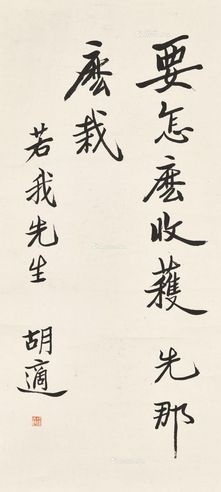 要怎麽收穫先那
麽栽
若我先生
胡適